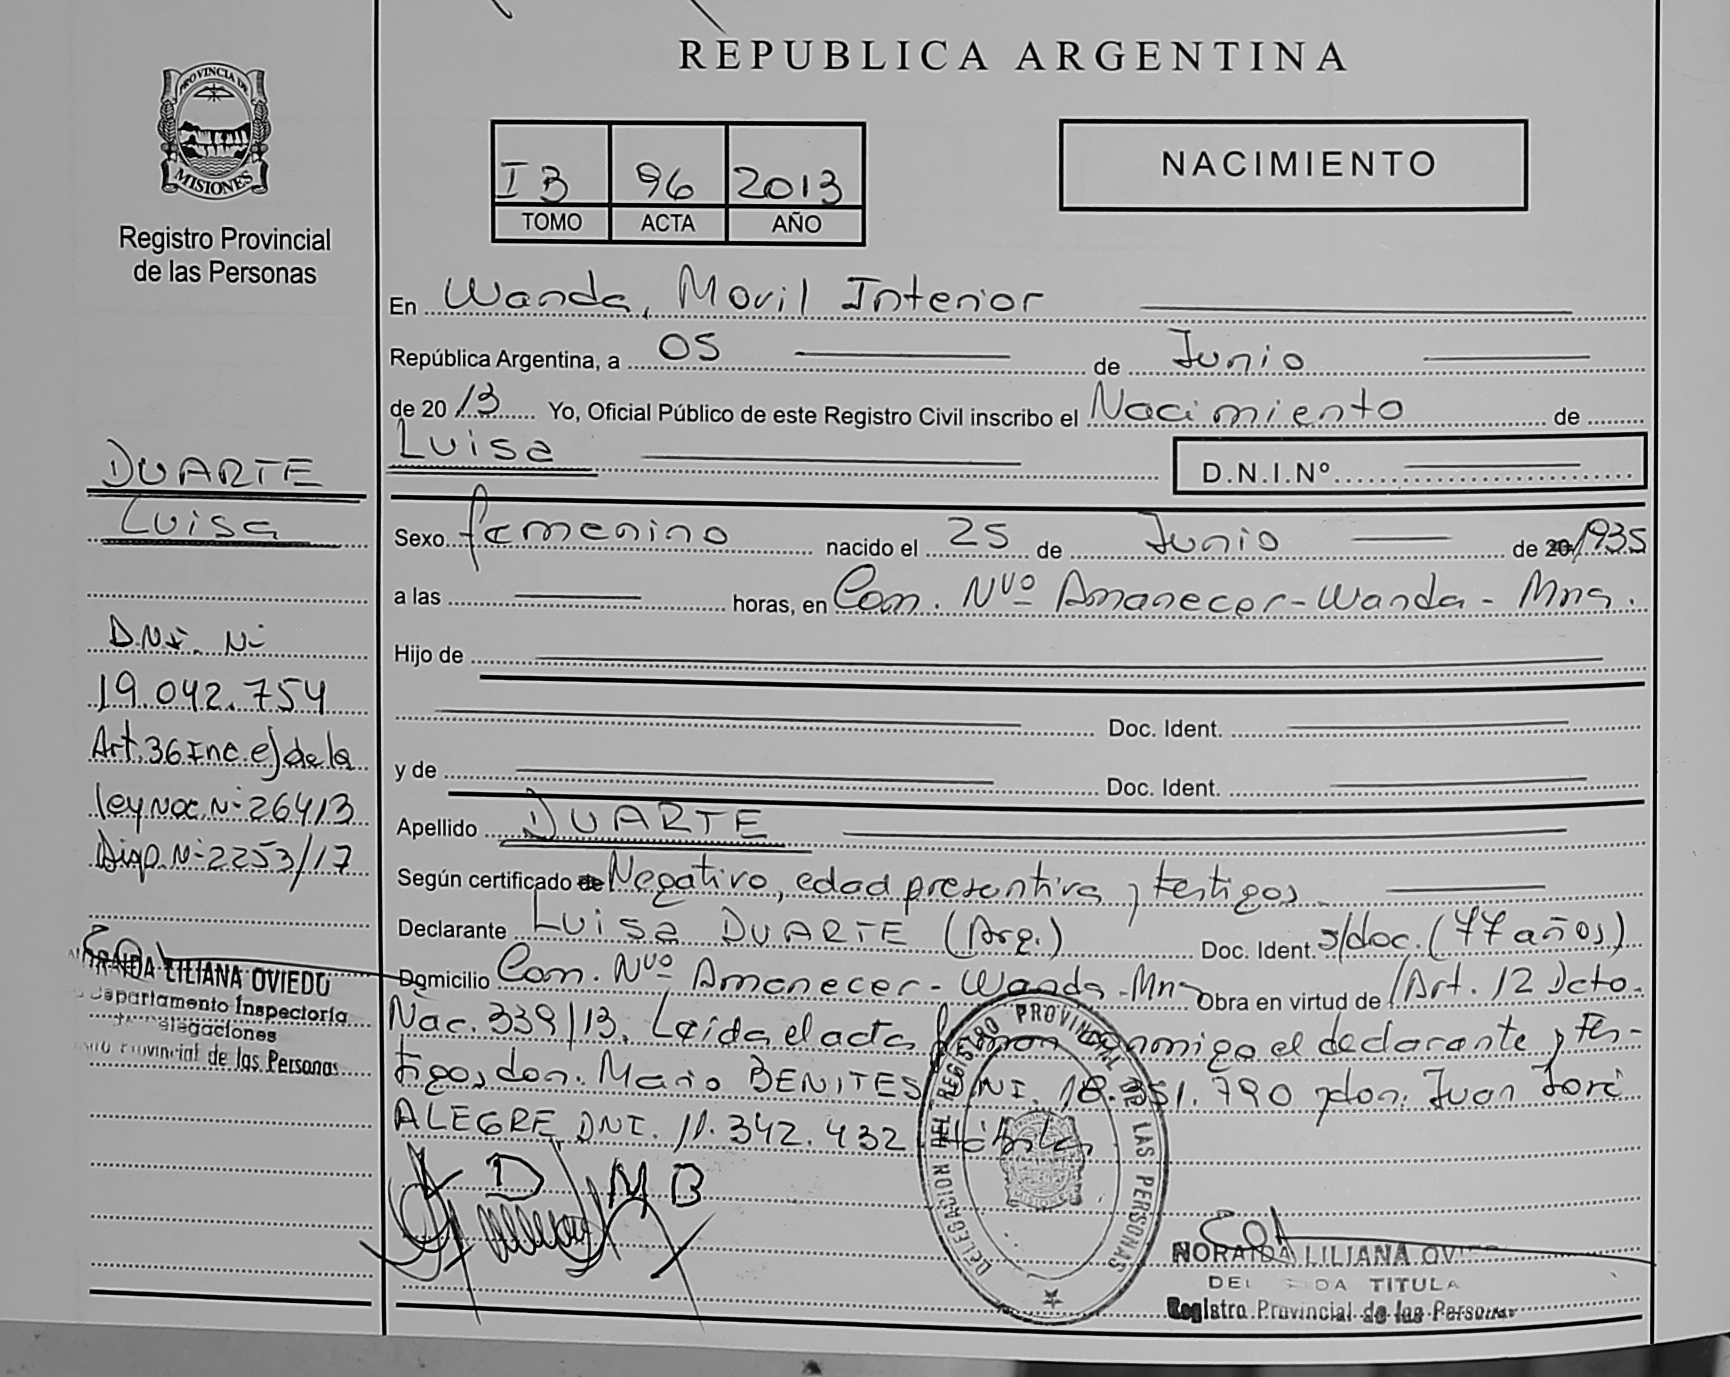 REPUBLICA ARGENTINA
PROVINCIA DE
MISIONES
Registro Provincial
de las Personas
IB 96 2013
TOMO ACTA AÑO
NACIMIENTO
En Wanda, Movil Interior
República Argentina, a 05 de Junio
de 20 13 Yo, Oficial Público de este Registro Civil inscribo el Nacimiento de
Luisa D.N.I.Nº
DUARTE
Luisa
D.N.I. Nº
19.042.754
Art.36 Inc.e) de la
ley Nac. Nº 26413
Disp. Nº 2253/17
Sexo femenino nacido el 25 de Junio de 20 1935
a las horas, en Com. Nvo Amanecer - Wanda - Mns.
Hijo de
Doc. Ident.
y de Doc. Ident.
Apellido DUARTE
Según certificado de Negativo, edad presuntiva y testigos
Declarante Luisa DUARTE (Arg.) Doc. Ident. s/doc. (77 años)
Domicilio Com. Nvo Amanecer - Wanda - Mns Obra en virtud de Art. 12 Dcto.
Nac. 339/13. Leída el acta firman conmigo el declarante y tes-
tigos don. Mario BENITES DNI. 18.351.790 y don. Juan José
ALEGRE DNI. 11.342.432 Hábiles
L D M B
LILIANA OVIEDO
Departamento Inspectoría
Delegaciones
Provincial de las Personas
DELEGACION DEL REGISTRO PROVINCIAL DE LAS PERSONAS
MISIONES
NORAIDA LILIANA OVIE
DEL DA TITULA
Registro Provincial de las Personas